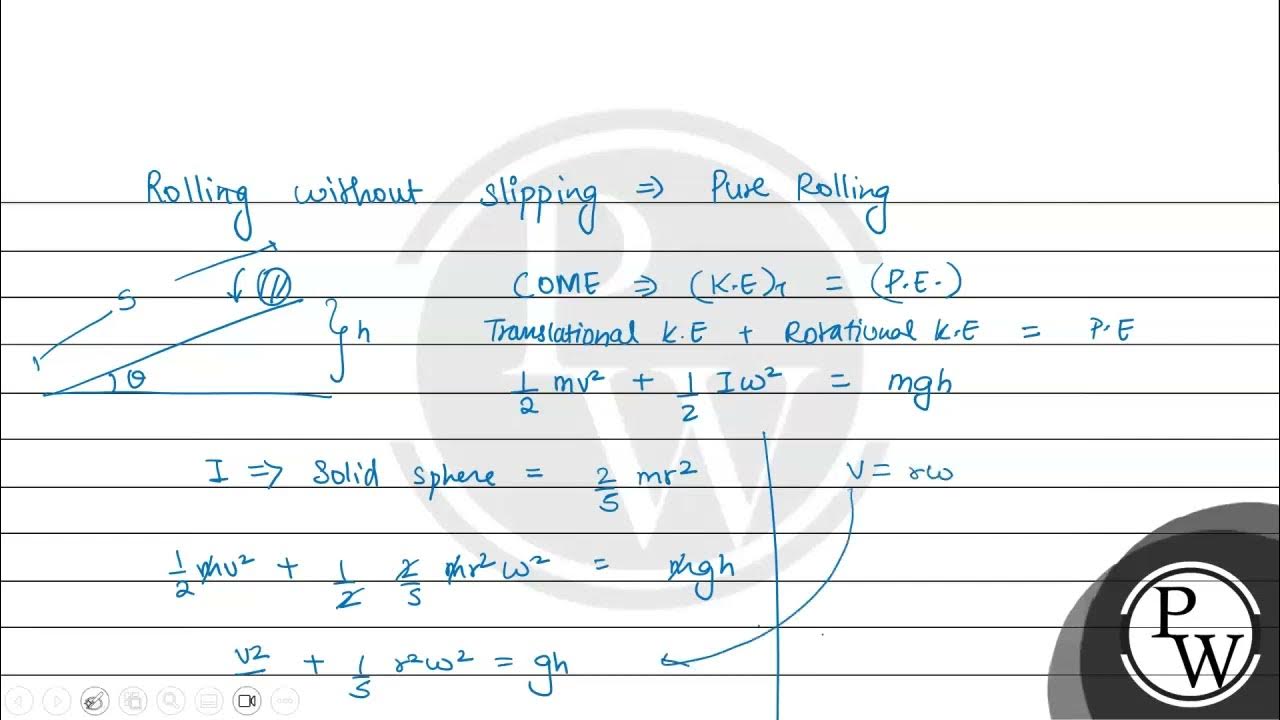 Rolling without slipping ⇒ Pure Rolling
S
h
θ
COME ⇒ (K.E)T = (P.E.)
Translational K.E + Rotational K.E = P.E
1/2 mv² + 1/2 Iω² = mgh
I ⇒ Solid sphere = 2/5 mr²
v = rω
1/2 mv² + 1/2 2/5 mr²ω² = mgh
v²/ + 1/5 r²ω² = gh
PW
PW